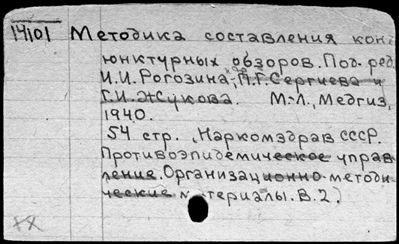 14101 Методика составления конъ
юнктурных обзоров. Под. ред.
И.И. Рогозина, П.Г. Сергиева и
Г.И. Жукова. М.-Л., Медгиз,
1940.
54 стр. (Наркомздрав СССР.
Противоэпидемическое управ
ление. Организационно-методи
ческие материалы. В.2)
XX